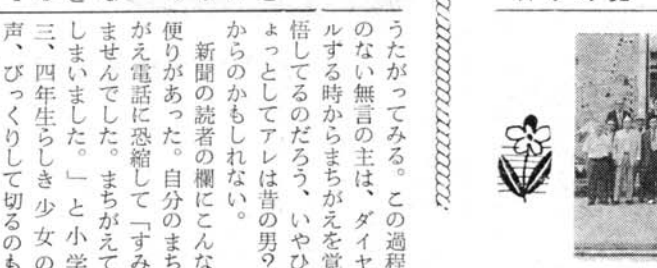 うたがってみる。この過程
のない無言の主は、ダイヤ
ルする時からまちがえを覚
悟してるのだろう、いやひ
ょっとしてアレは昔の男?
からのかもしれない。
新聞の読者の欄にこんな
便りがあった。自分のまち
がえ電話に恐縮して「すみ
ませんでした。まちがえて
しまいました。」と小学
三、四年生らしき少女の
声、びっくりして切るのも